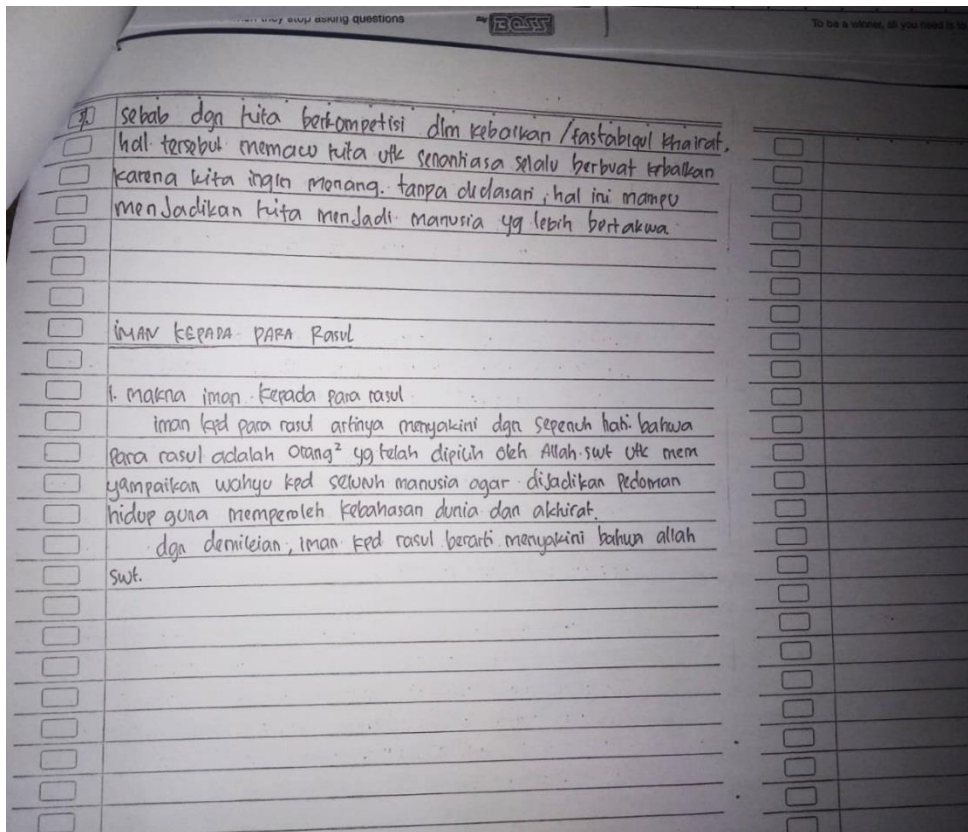 they stop asking questions
BOSS
To be a winner, all you need is to
sebab dgn kita berkompetisi dlm kebaikan / fastabiqul khairat,
hal tersebut memacu kita utk senantiasa selalu berbuat kebaikan
karena kita ingin menang. tanpa didasari, hal ini mampu
menjadikan kita menjadi manusia yg lebih bertakwa.
IMAN KEPADA PARA Rasul
1. makna iman kepada para rasul
iman kpd para rasul artinya menyakini dgn sepenuh hati bahwa
para rasul adalah orang² yg telah dipilih oleh Allah swt utk mem
yampaikan wahyu kpd seluruh manusia agar dijadikan pedoman
hidup guna memperoleh kebahasan dunia dan akhirat.
dgn demikian, iman kpd rasul berarti menyakini bahwa allah
swt.